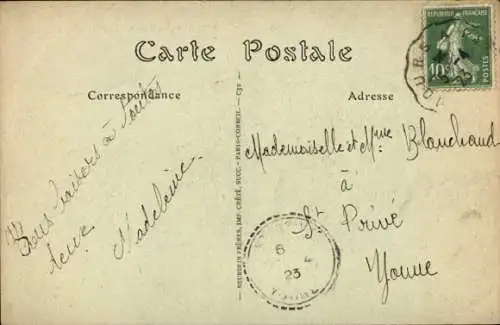 Carte Postale
Correspondance
Adresse
Bons baisers à toutes
deux
Madeleine.
Mademoiselle et Mme Blanchard
à
St Privé
Yonne
RÉPUBLIQUE FRANÇAISE
10c
POSTES
6
23